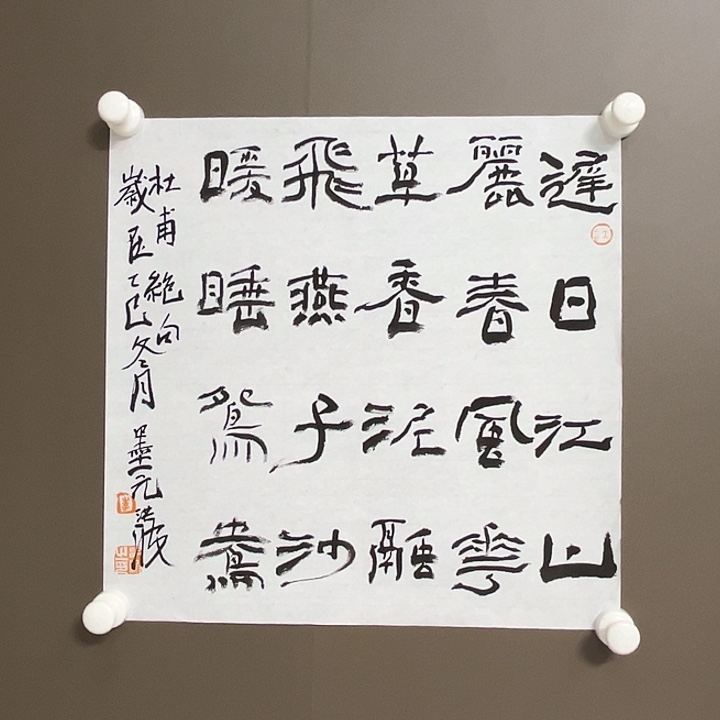 遲日江山
麗春風華
草香泥融
飛燕子沙
暖睡鴛鴦
杜甫絶句
歲在乙巳冬月墨元